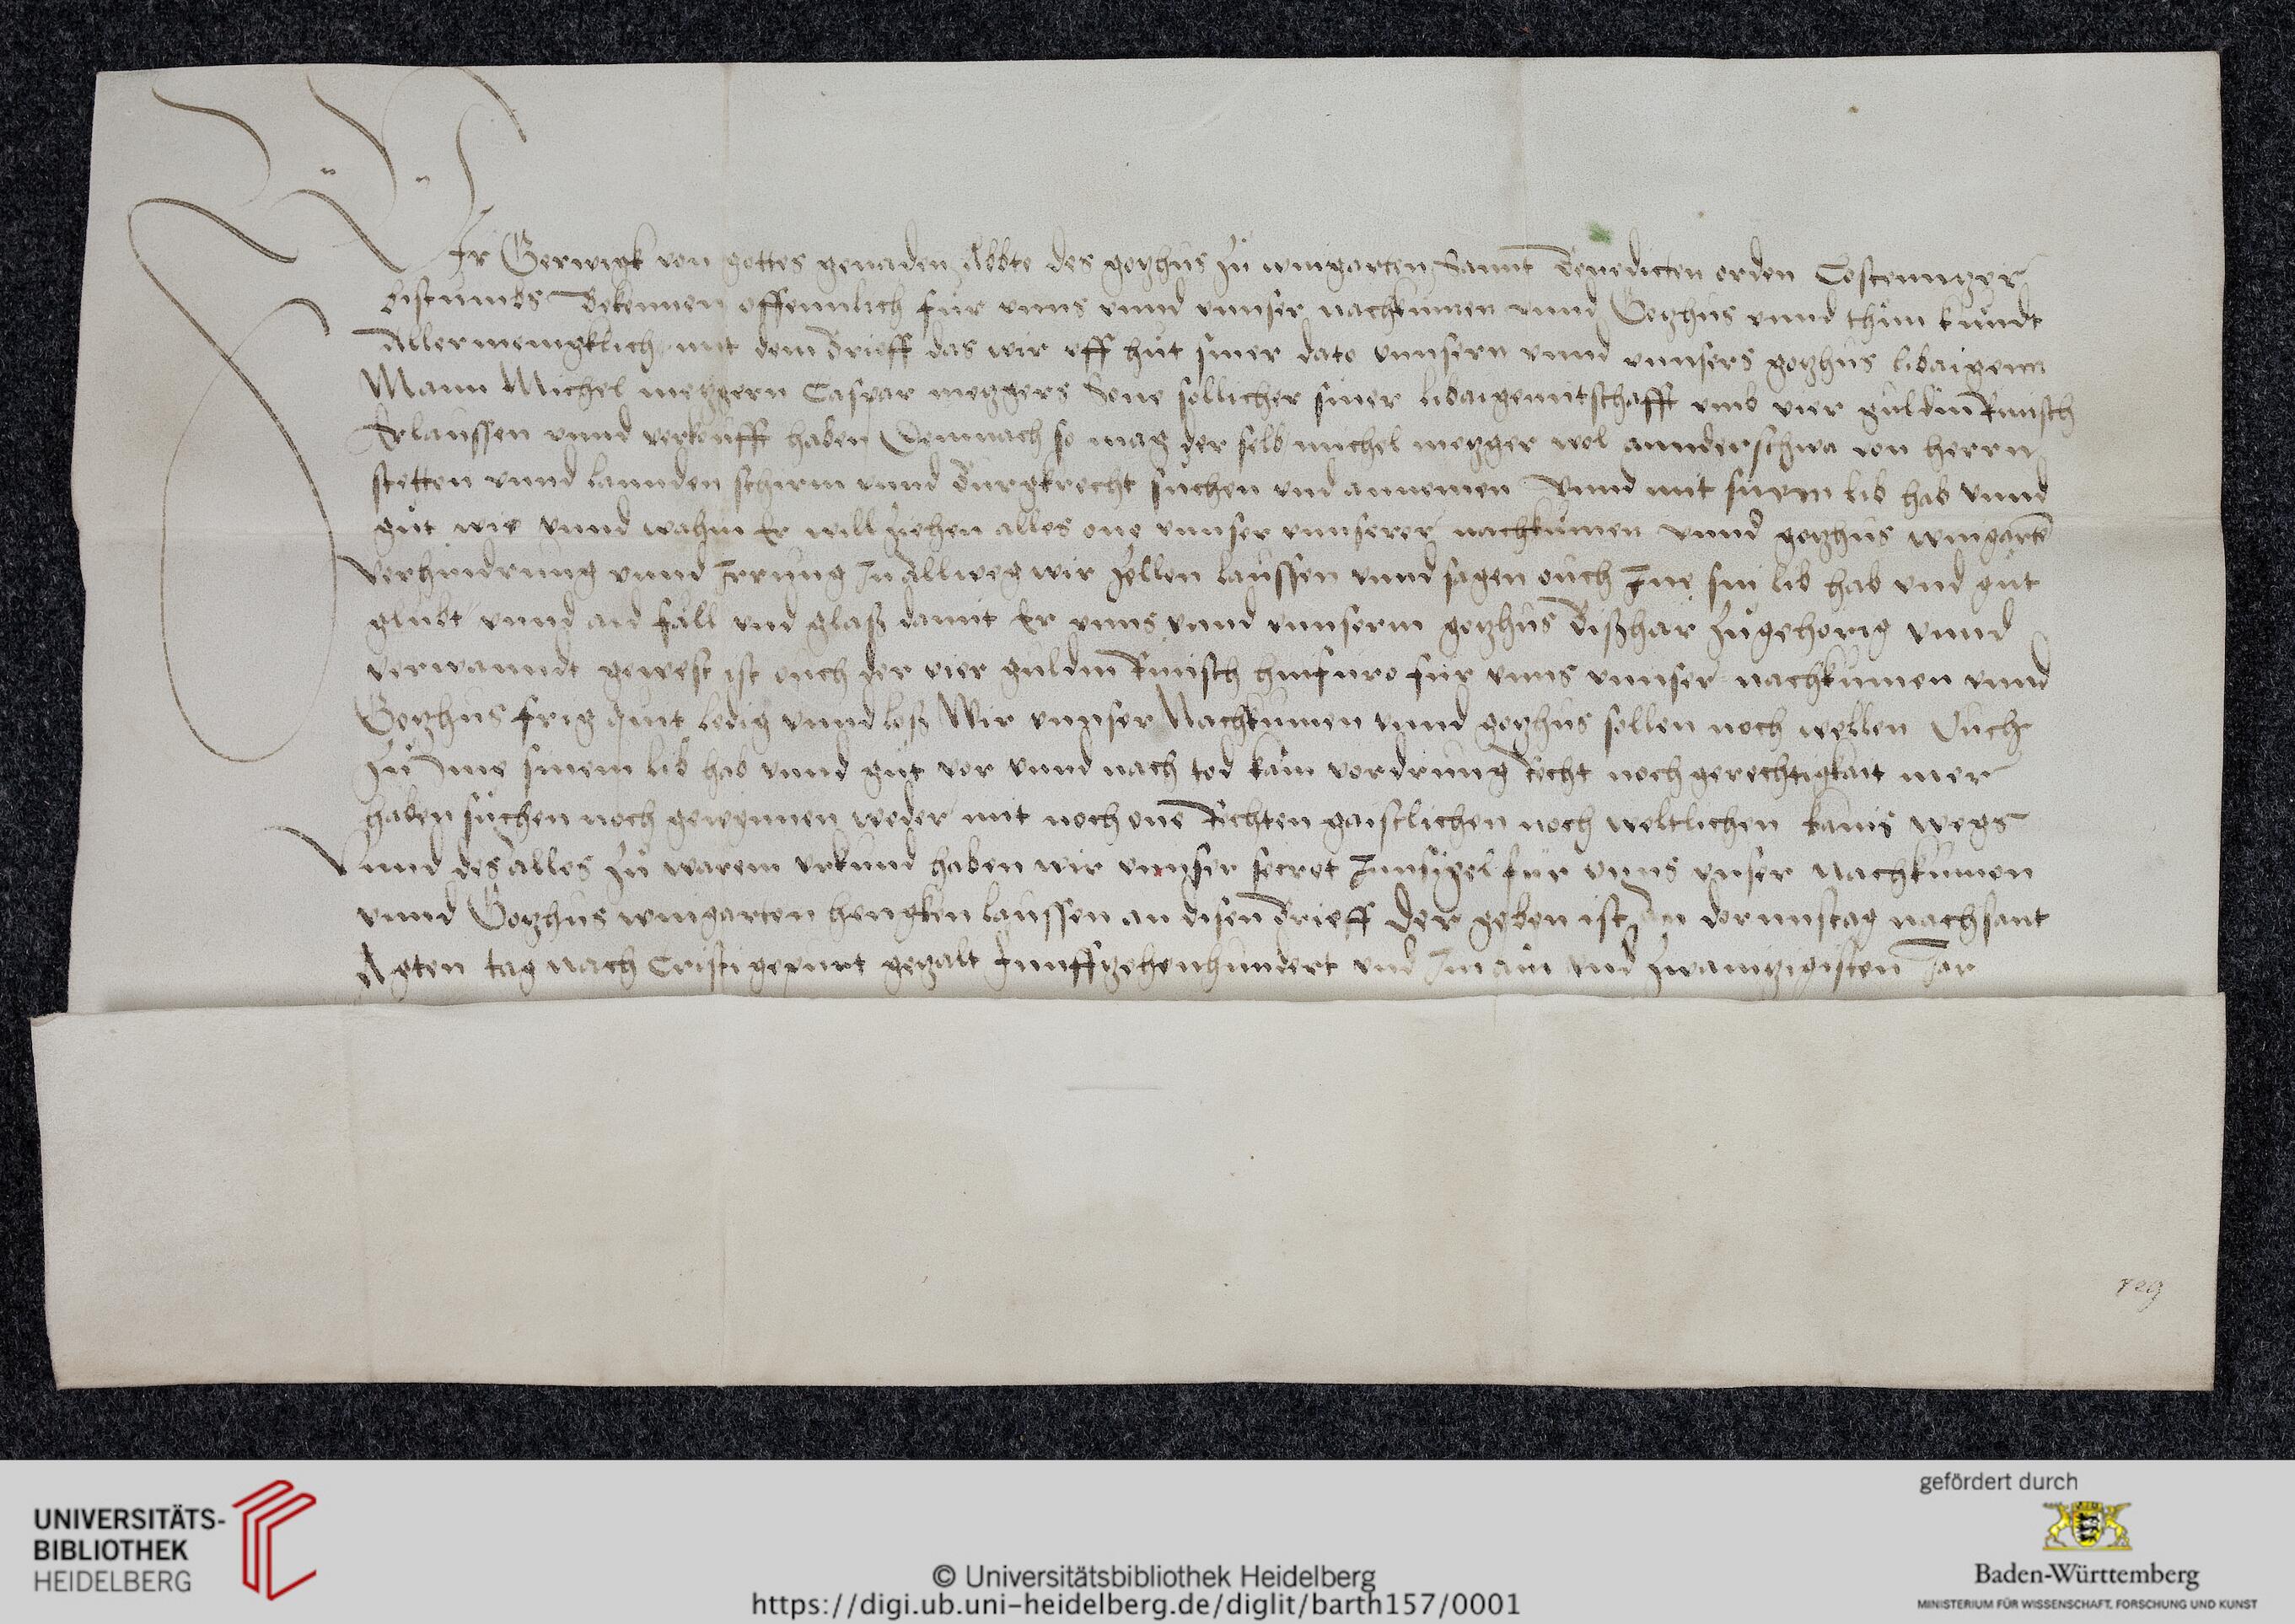 Wir Gerwigk von gottes genaden Abbte des gotzhus zu wingarten Sannt Benedicten orden Costenntzer
bistumbs Bekennen offennlich fur unns unnd unnser nachkumen unnd Gotzhus unnd thun kundt
Allermenigklich mit dem brieff das wir uff hut siner dato unnsern unnd unnsers gotzhus libaigenn
Mann Michel metzgern Caspar metzgers Sone sollicher siner libaigenntschafft umb vier guldin Rinisch
Erlaussen unnd verkoufft haben Demnach so mag der selb michel metzger wol annderschwa von herrn
stetten unnd lannden schirm unnd Burgkrecht suchen und annemen Unnd mit sinem lib hab unnd
gut wie unnd wahin Er will ziehen alles one unnser unnserer nachkumen unnd gotzhus wingarten
verhindrung unnd Irrung In allweg wir zellen laussen unnd sagen ouch Ine sin lib hab und gut
glubt unnd aid fäll und glaß damit Er unns unnd unnserm gotzhus bißhar zugehorig unnd
verwanndt gewest ist ouch der vier guldin Rinisch hinfuro fur unns unnser nachkumen unnd
Gotzhus frig quit ledig unnd loß Wir unnser Nachkumen unnd gotzhus sollen noch wellen Ouch
zu Ime sinem lib hab unnd gut vor unnd nach tod kain vordrung Recht noch gerechtigkait mer
haben suchen noch gewynnen weder mit noch one Rechten gaistlichen noch weltlichen kains wegs
Unnd des alles zu warem urkund haben wir unnser secret Innsigel fur unns unser nachkumen
unnd Gotzhus wingarten hengken laussen an disen brieff Der geben ist An dornnstag nach sant
Agten tag nach Cristi gepurt gezalt funffzehenhundert und Im ain und zwaintzigisten Jar
reg
UNIVERSITÄTS-
BIBLIOTHEK
HEIDELBERG
© Universitätsbibliothek Heidelberg
https://digi.ub.uni-heidelberg.de/diglit/barth157/0001
gefördert durch
Baden-Württemberg
MINISTERIUM FÜR WISSENSCHAFT, FORSCHUNG UND KUNST